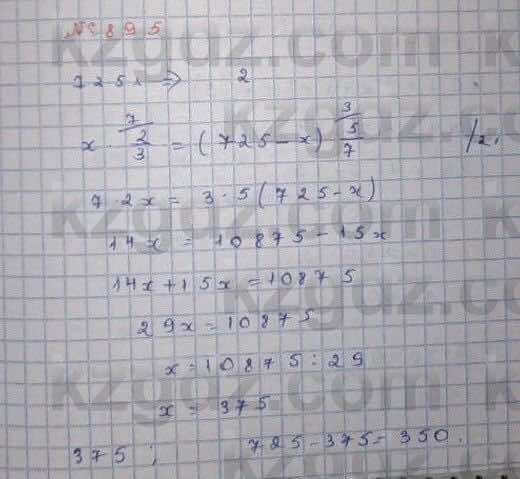 № 895
725 ⇒ 2
7 3
x · 2/3 = (725 - x) 5/7 /2.
7 · 2x = 3 · 5(725 - x)
14x = 10875 - 15x
14x + 15x = 10875
29x = 10875
x = 10875 : 29
x = 375
375 ; 725 - 375 = 350.
kzguz.com